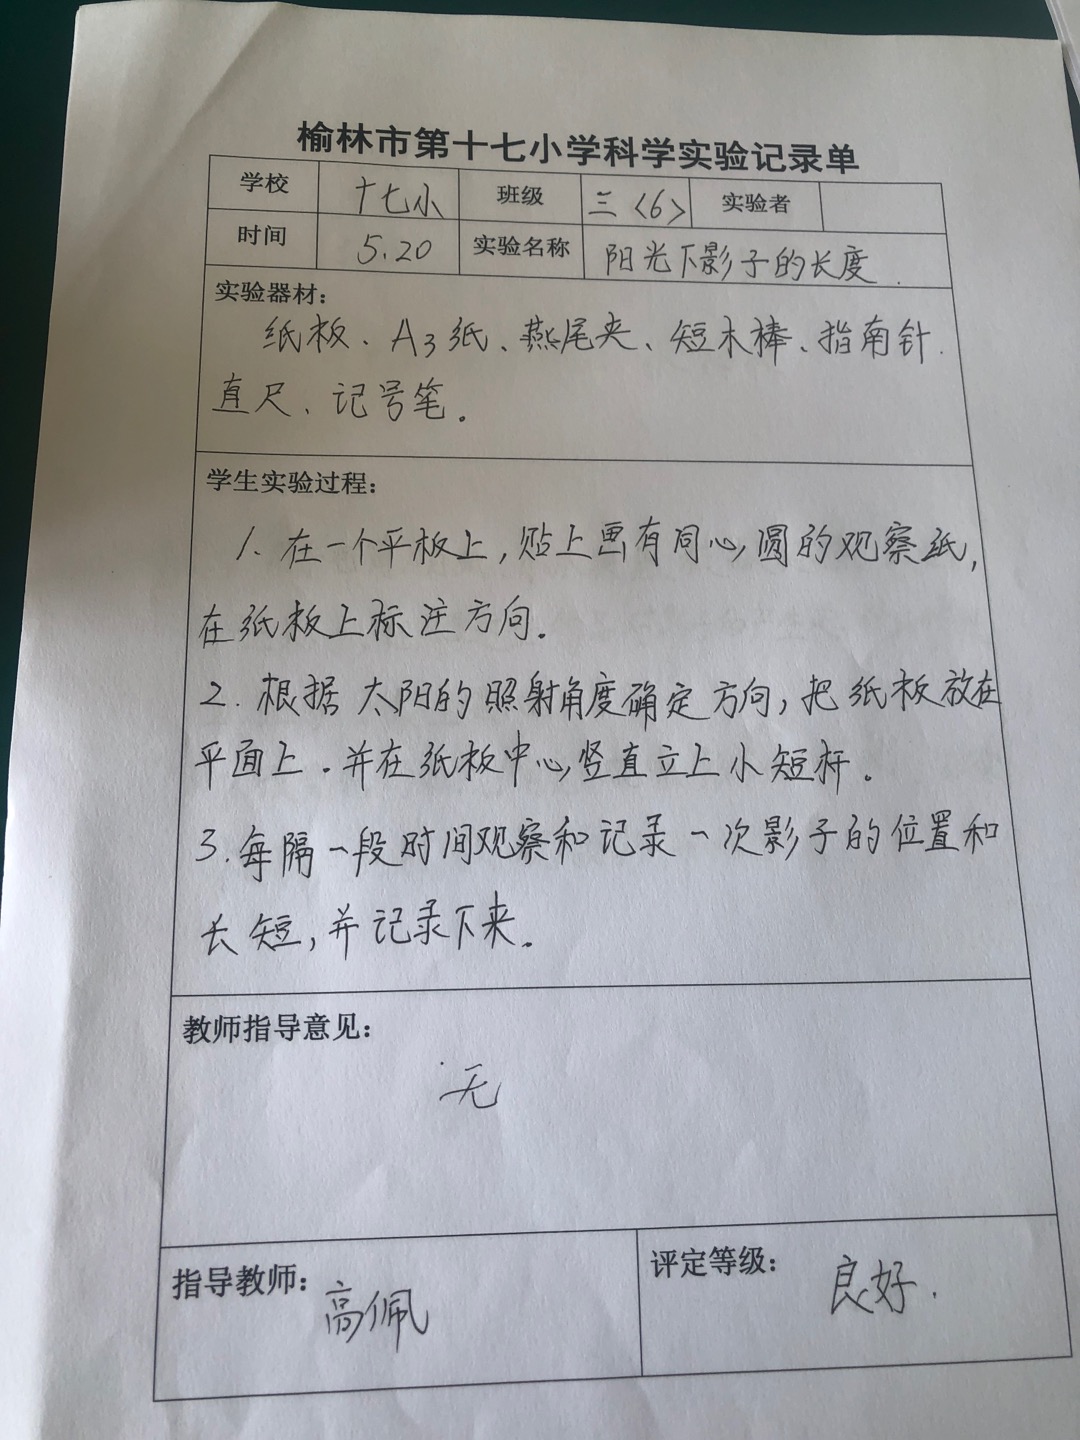 榆林市第十七小学科学实验记录单
学校 十七小 班级 三〈6〉 实验者
时间 5.20 实验名称 阳光下影子的长度.
实验器材:
纸板、A3纸、燕尾夹、短木棒、指南针.
直尺、记号笔。
学生实验过程:
1、在一个平板上,贴上画有同心圆的观察纸,
在纸板上标注方向。
2.根据太阳的照射角度确定方向,把纸板放在
平面上.并在纸板中心竖直立上小短杆。
3.每隔一段时间观察和记录一次影子的位置和
长短,并记录下来。
教师指导意见:
无
指导教师: 高佩
评定等级: 良好.